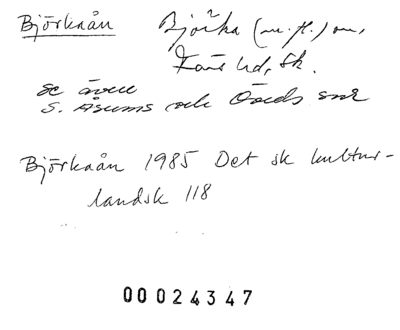 Björkaån Björka (m.fl.) sn,
Färs hd, Sk.
se även
S. Åsums och Öveds snr
Björkaån 1985 Det sk kultur-
landsk 118
00024347